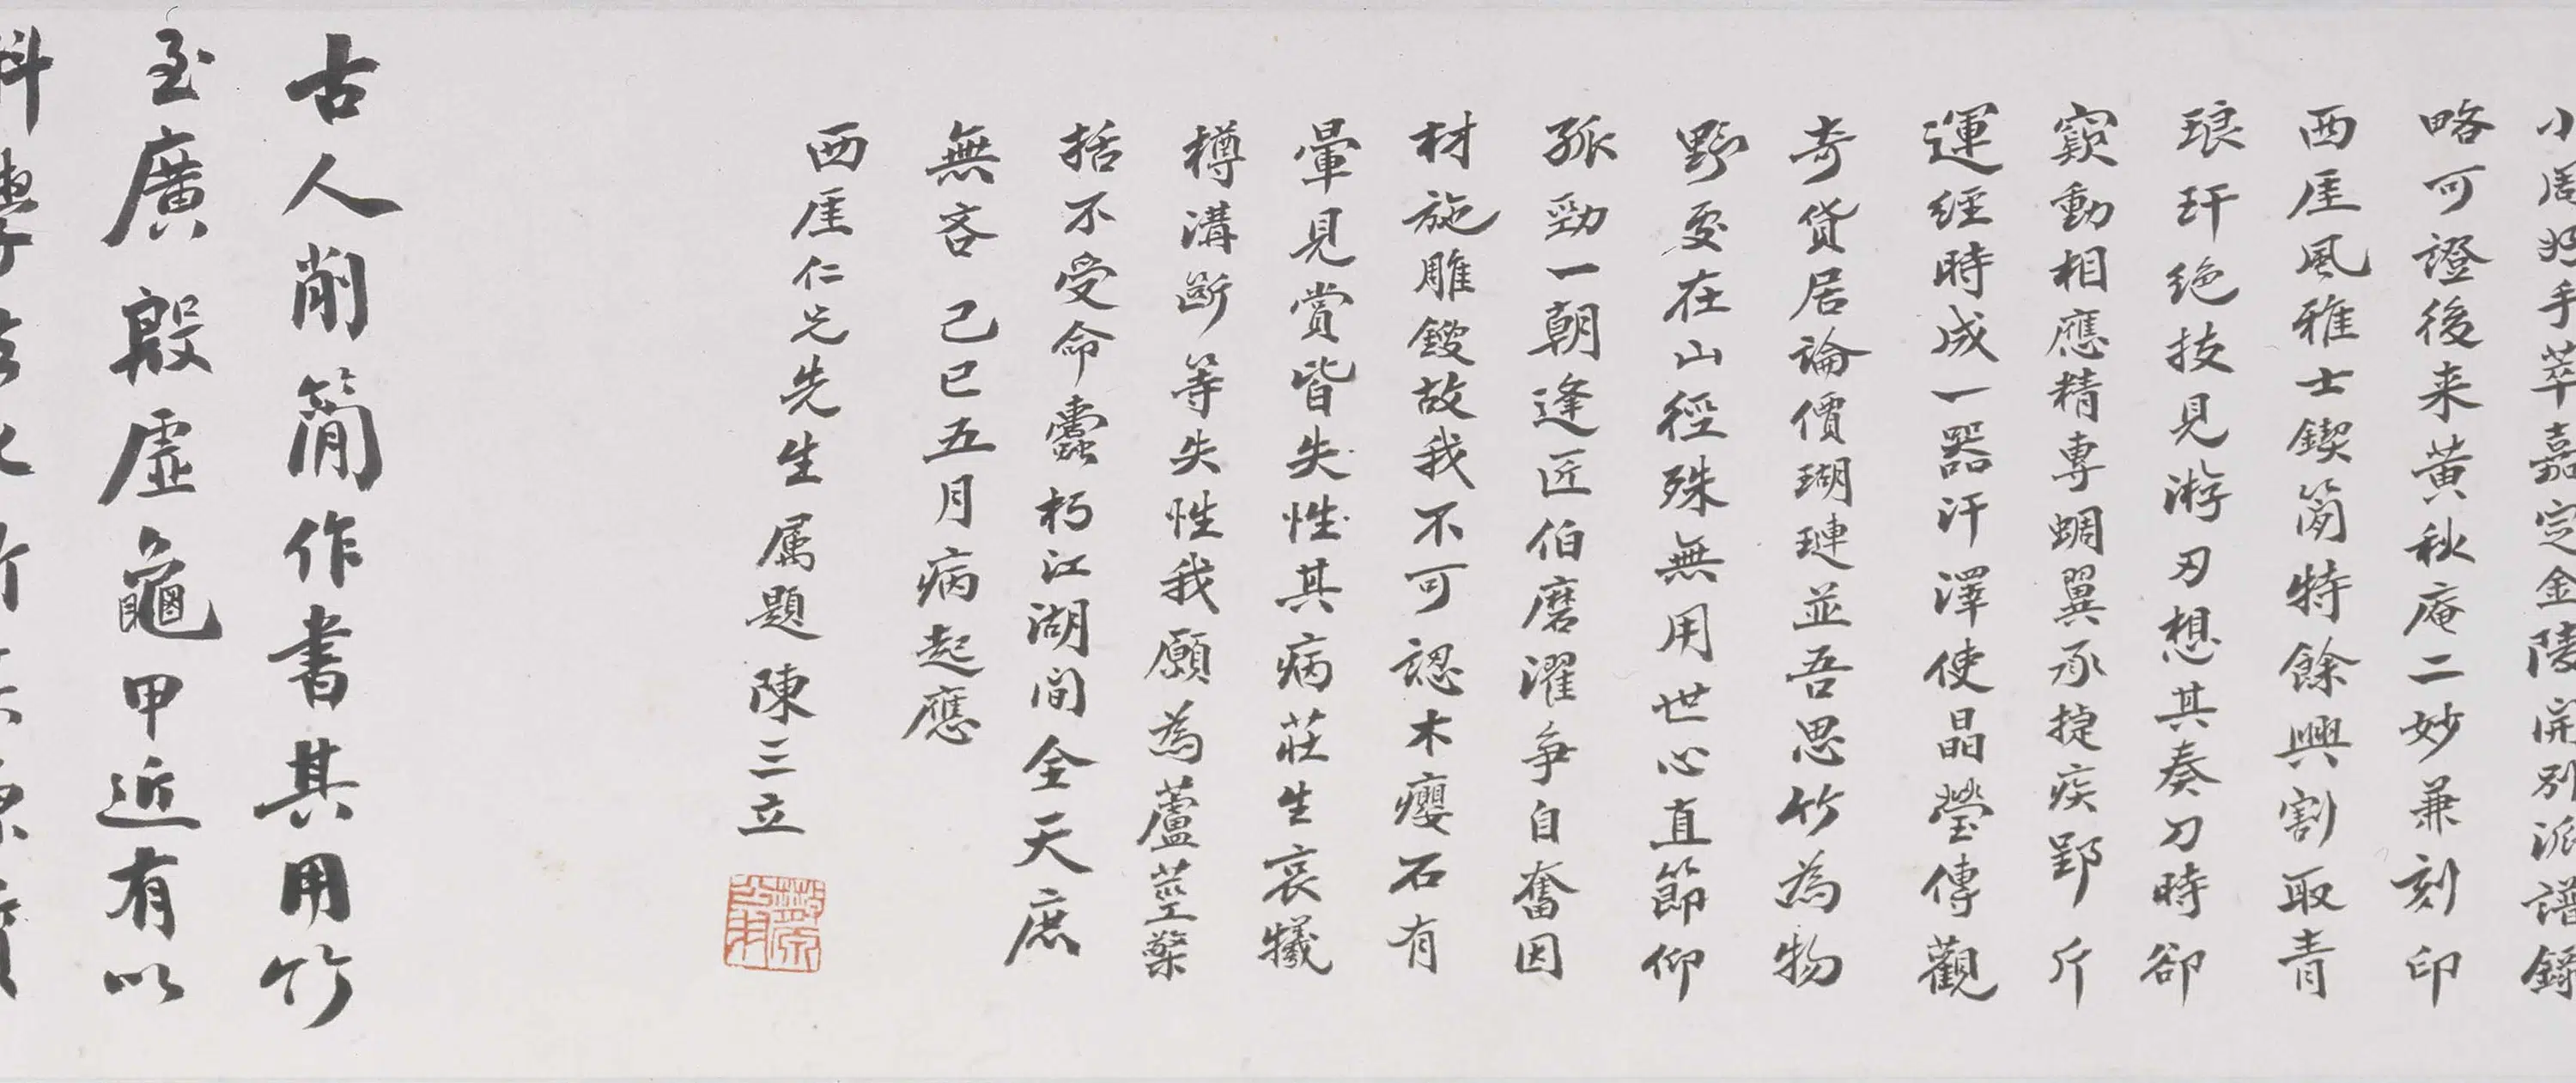 小周好手萃嘉定金陵開別派譜錚
略可證後来黃秋庵二妙兼刻印
西厓風雅士鍥簡特餘興割取青
琅玕絶技見游刃想其奏刀時郤
窾動相應精專蜩翼承捷疾郢斤
運經時成一器汗澤使晶瑩傳觀
奇貨居論價瑚璉並吾思竹為物
野處在山徑殊無用世心直節仰
孤勁一朝逢匠伯磨濯争自奮因
材施雕鎪故我不可認木癭石有
暈見賞皆失性其病莊生哀犧
樽溝斷等失性我願為蘆莖檠
括不受命蠹朽江湖間全天庶
無吝 己巳五月病起應
西厓仁兄先生属題 陳三立
古人削簡作書其用竹
至廣殷虛龜甲近有以